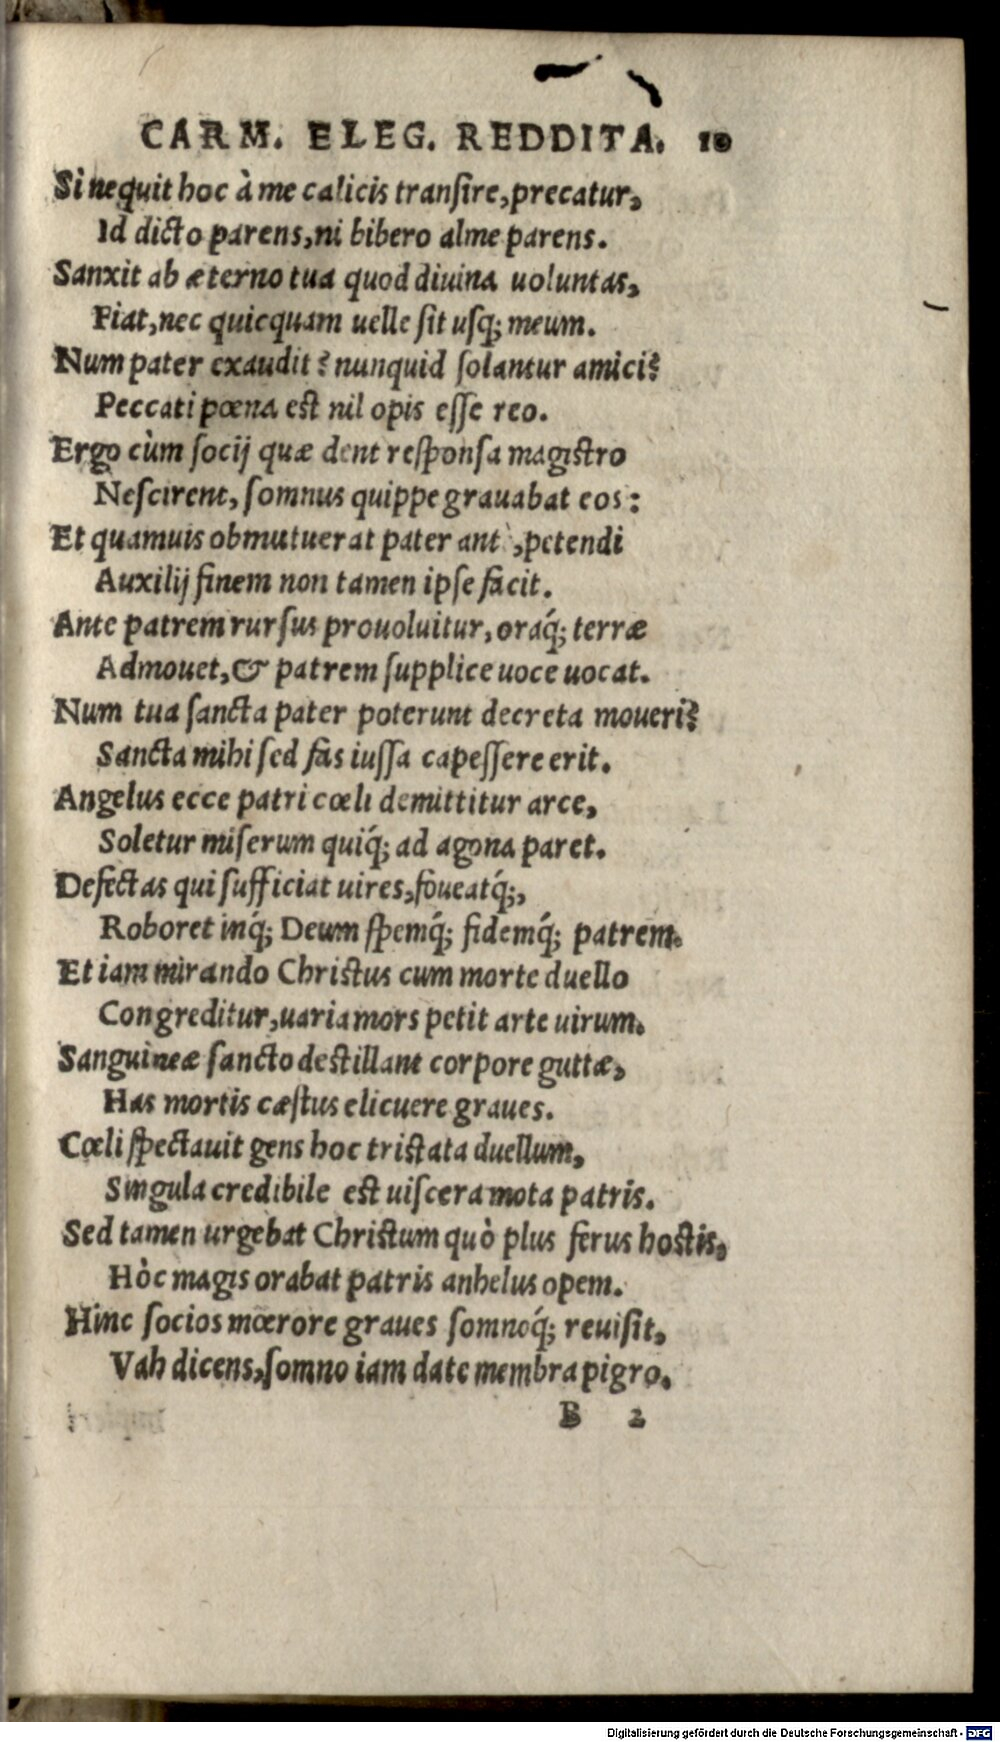 CARM. ELEG. REDDITA. 10
Si nequit hoc à me calicis transire, precatur,
Id dicto parens, ni bibero alme parens.
Sanxit ab æterno tua quod diuina uoluntas,
Fiat, nec quicquam uelle sit usq; meum.
Num pater exaudit? nunquid solantur amici?
Peccati pœna est nil opis esse reo.
Ergo cùm socij quæ dent responsa magistro
Nescirent, somnus quippe grauabat eos:
Et quamuis obmutuerat pater , petendi
Auxilij finem non tamen ipse facit.
Ante patrem rursus prouoluitur, oraq́; terræ
Admouet, & patrem supplice uoce uocat.
Num tua sancta pater poterunt decreta moueri?
Sancta mihi sed fas iussa capessere erit.
Angelus ecce patri cœli demittitur arce,
Soletur miserum quiq́; ad agona paret.
Defectas qui sufficiat uires, foueatq́;,
Roboret inq́; Deum spemq́; fidemq́; patrem.
Et iam mirando Christus cum morte duello
Congreditur, uaria mors petit arte uirum.
Sanguineæ sancto destillant corpore guttæ,
Has mortis cæstus elicuere graues.
Cœli spectauit gens hoc tristata duellum,
Singula credibile est uiscera mota patris.
Sed tamen urgebat Christum quò plus ferus hostis,
Hòc magis orabat patris anhelus opem.
Hinc socios mœrore graues somnoq́; reuisit,
Vah dicens, somno iam date membra pigro.
B 2
Digitalisierung gefördert durch die Deutsche Forschungsgemeinschaft - DFG